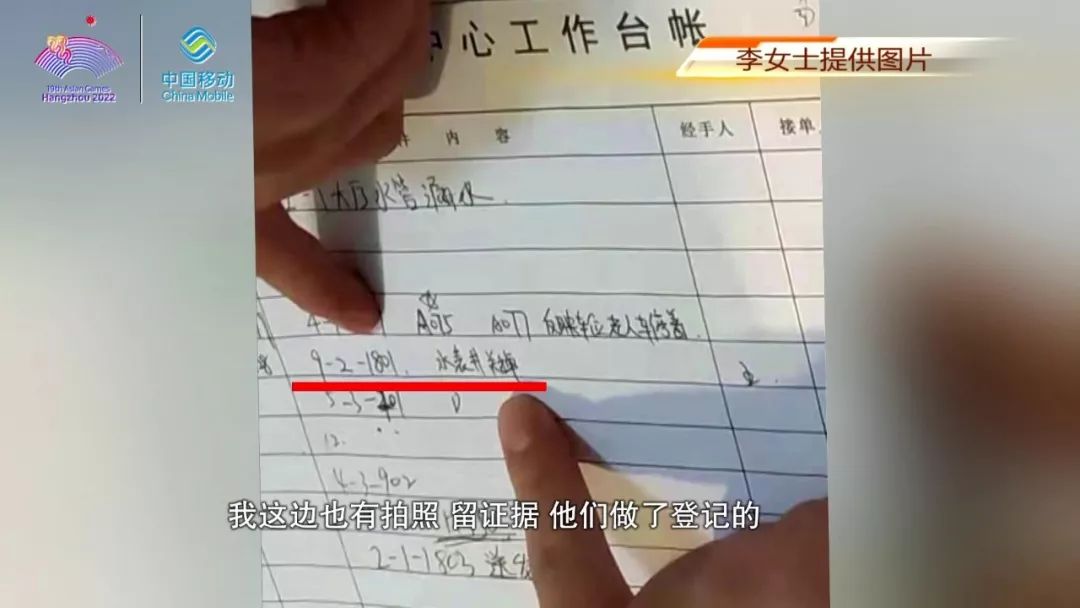 19th Asian Games
Hangzhou 2022
中国移动
China Mobile
李女士提供图片
中心工作台帐
内 容
经手人
接单
大厅水管漏水
A075 A077 反映车位老人车停着
9-2-1801. 水表井关掉
12.
4-3-902
2-1-1803
我这边也有拍照 留证据 他们做了登记的